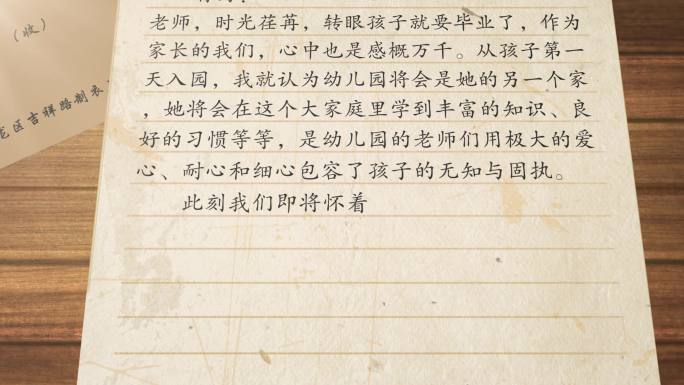 老师，时光荏苒，转眼孩子就要毕业了，作为
家长的我们，心中也是感概万千。从孩子第一
天入园，我就认为幼儿园将会是她的另一个家
，她将会在这个大家庭里学到丰富的知识、良
好的习惯等等，是幼儿园的老师们用极大的爱
心、耐心和细心包容了孩子的无知与固执。
此刻我们即将怀着
（收）
区吉祥路制衣